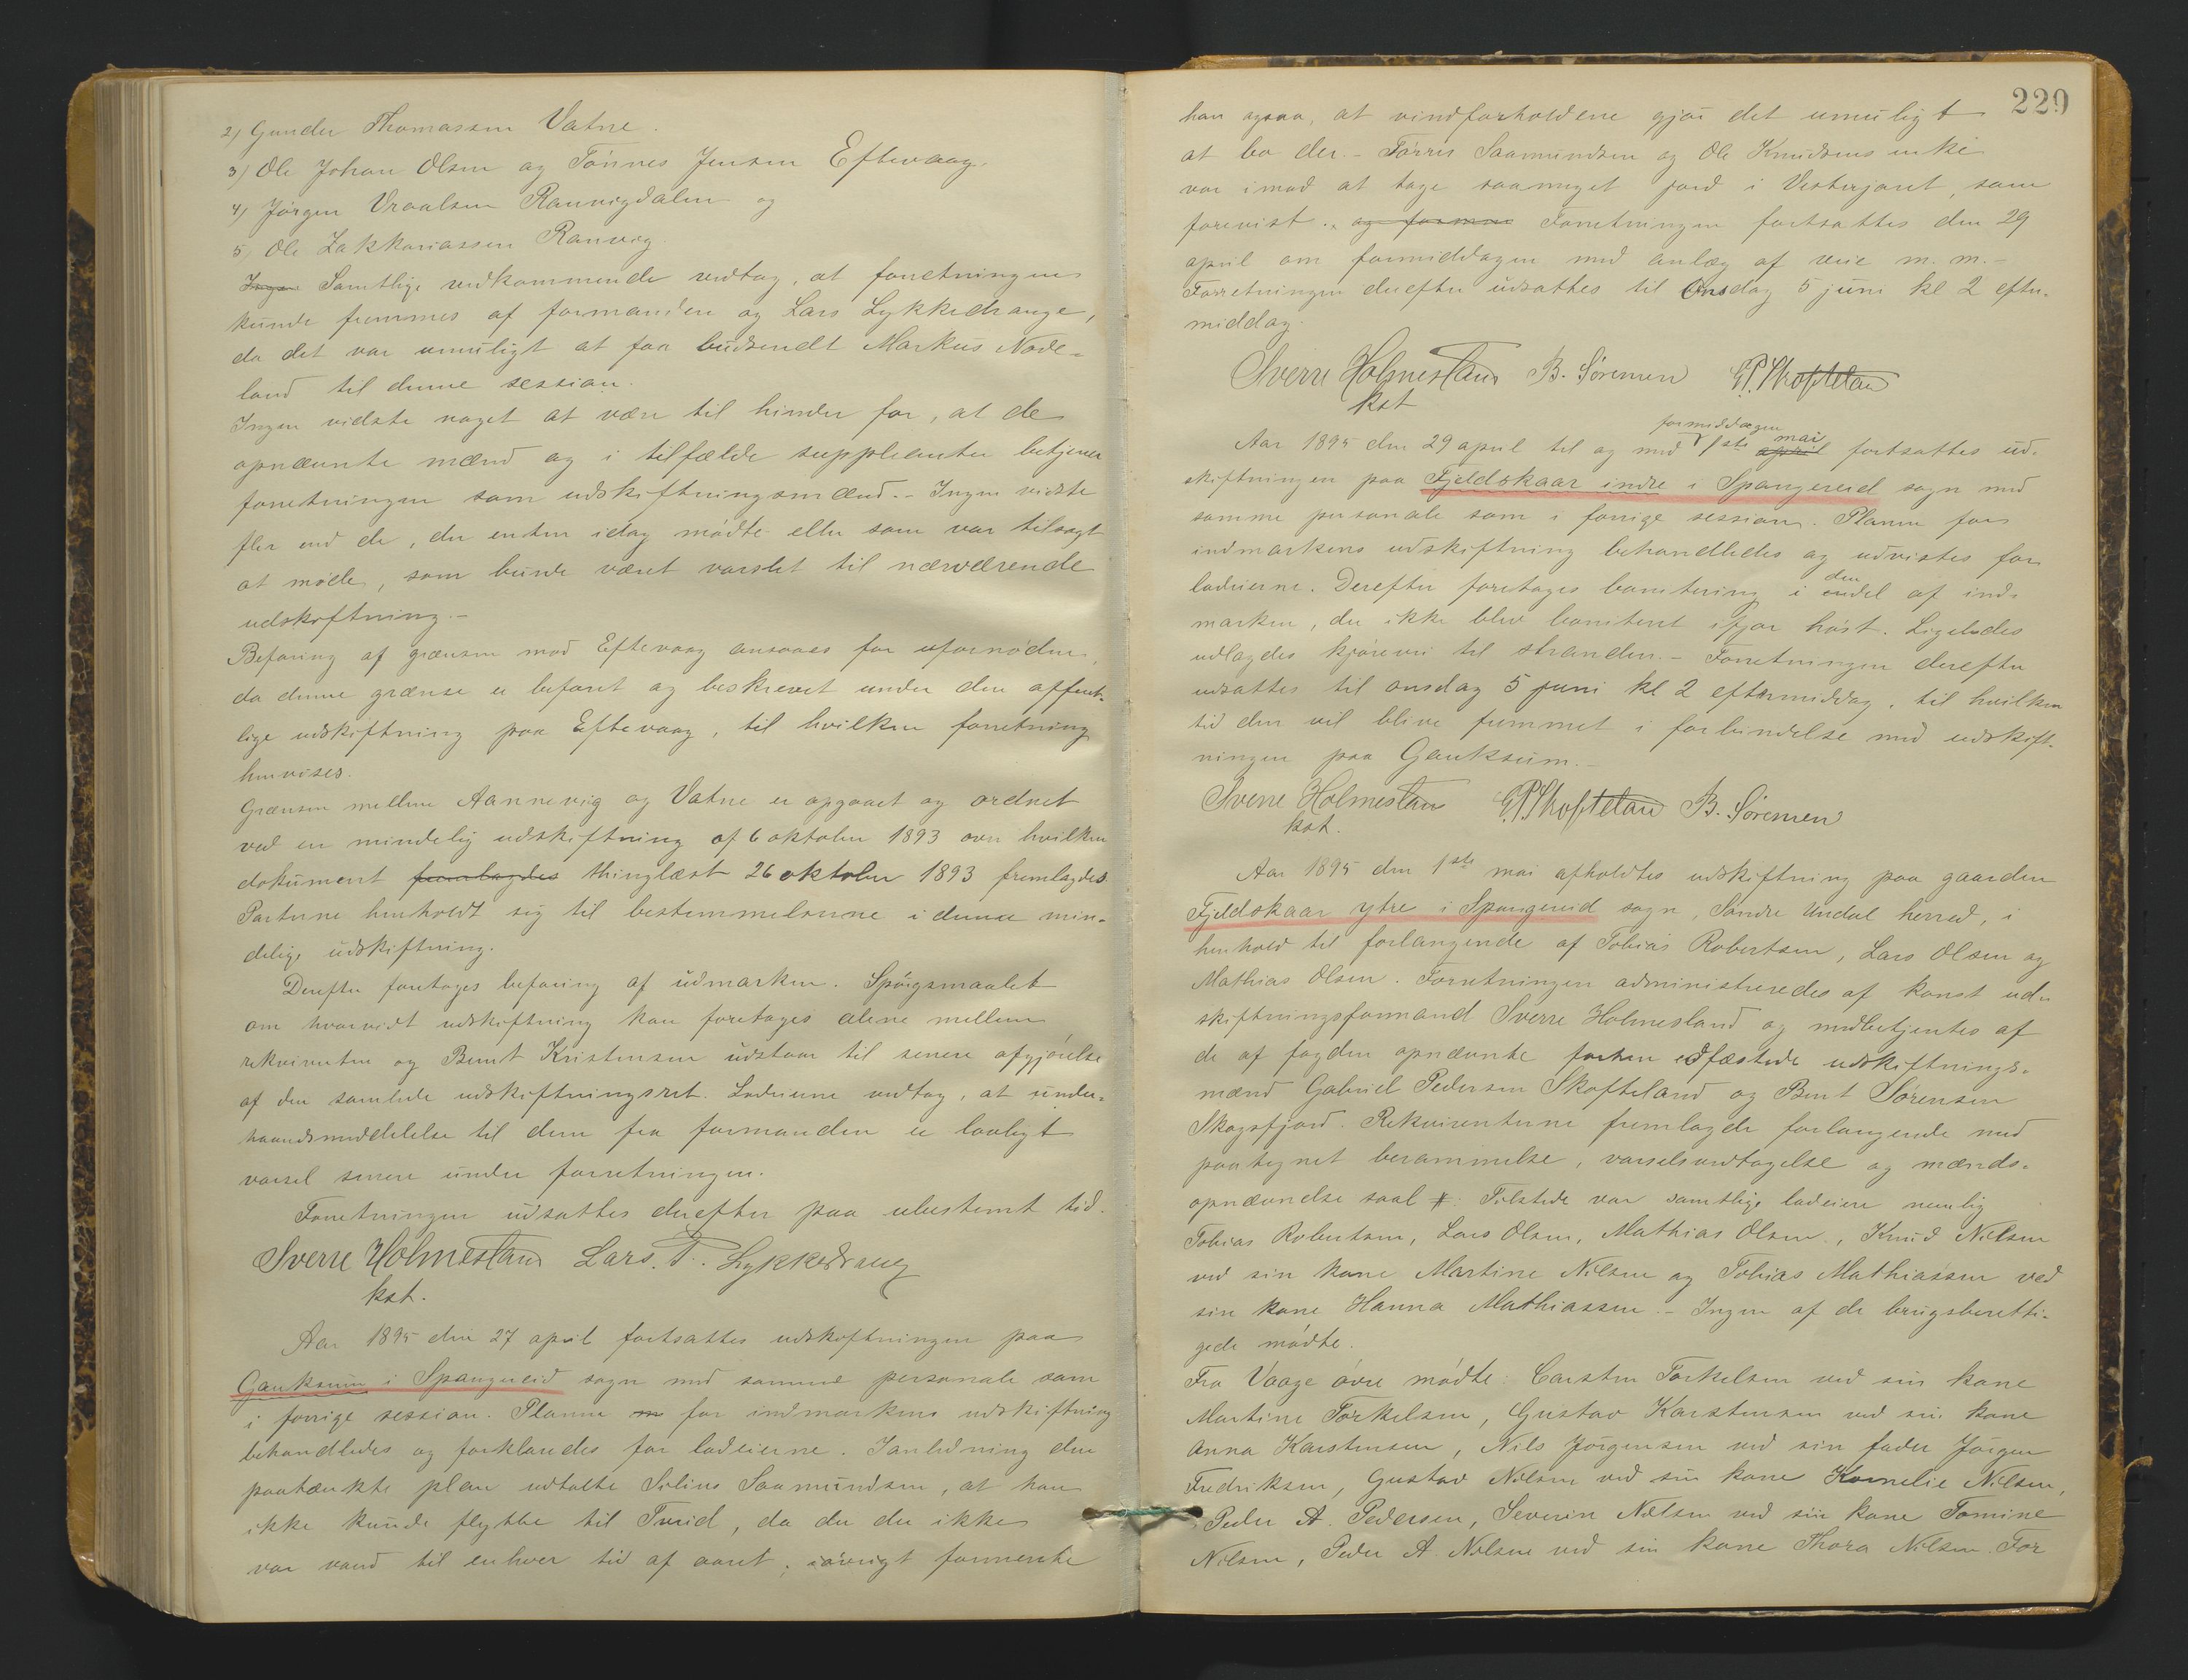 2) Gunder Thomassen Vatne.
3) Ole Johan Olsen og Tönnes Jensen Eftevaag.
4) Jörgen Vraalsen Ranvigdalen og
5) Ole Zakkariassen Ranvig.
Ingen Samtlige vedkommende vedtog, at forretningen
kunde fremmes af formanden og Lars Lykkedrange,
da det var umuligt at faa budsendt Markus Node-
land til denne session.
Ingen vidste noget at være til hinder for, at de
opnævnte mænd og i tilfælde suppleanter betjener
forretningen som udskiftningsmænd. - Ingen vidste
fler end de, der enten idag mödte eller som var tilsagt
at möde, som burde været varslet til nærværende
udskiftning. -
Befaring af grænsen mod Eftevaag ansaaes for ufornöden,
da denne grænse er befaret og beskrevet under den offent-
lige udskiftning paa Eftevaag, til hvilken forretning
henvises.
Grænsen mellem Aannevig og Vatne er opgaaet og ordnet
ved en mindelig udskiftning af 6 oktober 1893 over hvilken
dokument fremlagdes thinglæst 26 oktober 1893 fremlagdes.
Parterne henholdt sig til bestemmelserne i denne min-
delige udskiftning.
Derefter foretoges befaring af udmarken. Spörgsmaalet
om hvorvidt udskiftning kan foretages alene mellem
rekvirenten og Bernt Kristensen udstaar til senere afgjörelse
af den samlede udskiftningsret. Lodeierne vedtog, at under-
haandsmeddelelse til dem fra formanden er lovligt
varsel senere under forretningen.
Forretningen udsattes derefter paa ubestemt tid.
Sverre Holmesland Lars. T. Lykkedrang
kst.
Aar 1895 den 27 april fortsattes udskiftningen paa
Gauksum i Spangereid sogn med samme personale som
i forrige session. Planen m for indmarkens udskiftning
behandledes og forklaredes for lodeierne. I anledning den
paatænkte plan udtalte Silius Saamundsen, at han
ikke kunde flytte til Tveid, da der der ikke
var vand til enhver tid af aaret; iövrigt formente
229
han ogsaa, at vindforholdene gjör det umuligt
at bo der. - Törres Saamundsen og Ole Knudsens enke
var imod at tage saameget jord i Vesterjaret, som
forevist. og formen Forretningen fortsattes den 29
april om formiddagen med anlæg af veie m. m. -
Forretningen derefter udsattes til Onsdag 5 juni kl 2 efter-
middag.
Sverre Holmesland B. Sörensen G. P. Skofteland
kst
formiddagen mai
Aar 1895 den 29 april til og med 1ste april fortsattes ud-
skiftningen paa Fjeldskaar indre i Spangereid sogn med
samme personale som i forrige session. Planen for
indmarkens udskiftning behandledes og udvistes for
den
lodeierne. Derefter foretoges bonitering i endel af ind-
marken, der ikke blev boniteret ifjor höst. Ligeledes
udlagdes kjörevei til stranden. - Forretningen derefter
udsattes til onsdag 5 juni kl 2 eftermiddag, til hvilken
tid den vil blive fremmet i forbindelse med udskift-
ningen paa Gauksum. -
Sverre Holmesland G. P. Skofteland B. Sörensen
kst.
Aar 1895 den 1ste mai afholdtes udskiftning paa gaarden
Fjeldskaar ytre i Spangereid sogn, Söndre Undal herred, i
henhold til forlangende af Tobias Robertsen, Lars Olsen og
Mathias Olsen. Forretningen administreredes af konst ud-
skiftningsformand Sverre Holmesland og medbetjentes af
de af fogden opnævnte forhen edfæstede udskiftnings-
mænd Gabriel Pedersen Skofteland og Bent Sörensen
Skogsfjord. Rekvirenterne fremlagde forlangende med
paategnet berammelse, varselsvedtagelse og mænds-
opnævnelse saal #. Tilstede var samtlige lodeiere nemlig
Tobias Robertsen, Lars Olsen, Mathias Olsen, Knud Nilsen
ved sin kone Martine Nilsen og Tobias Mathiassen ved
sin kone Hanna Mathiassen. - Ingen af de brugsberetti-
gede mödte.
Fra Vaage övre mödte: Carsten Torkelsen ved sin kone
Martine Torkelsen, Gustav Karstensen ved sin kone
Anna Karstensen, Nils Jörgensen ved sin fader Jörgen
Fredriksen, Gustav Nilsen ved sin kone Kornelie Nilsen,
Peder A. Pedersen, Severin Nilsen ved sin kone Tomine
Nilsen, Peder A. Nilsen ved sin kone Thora Nilsen. For